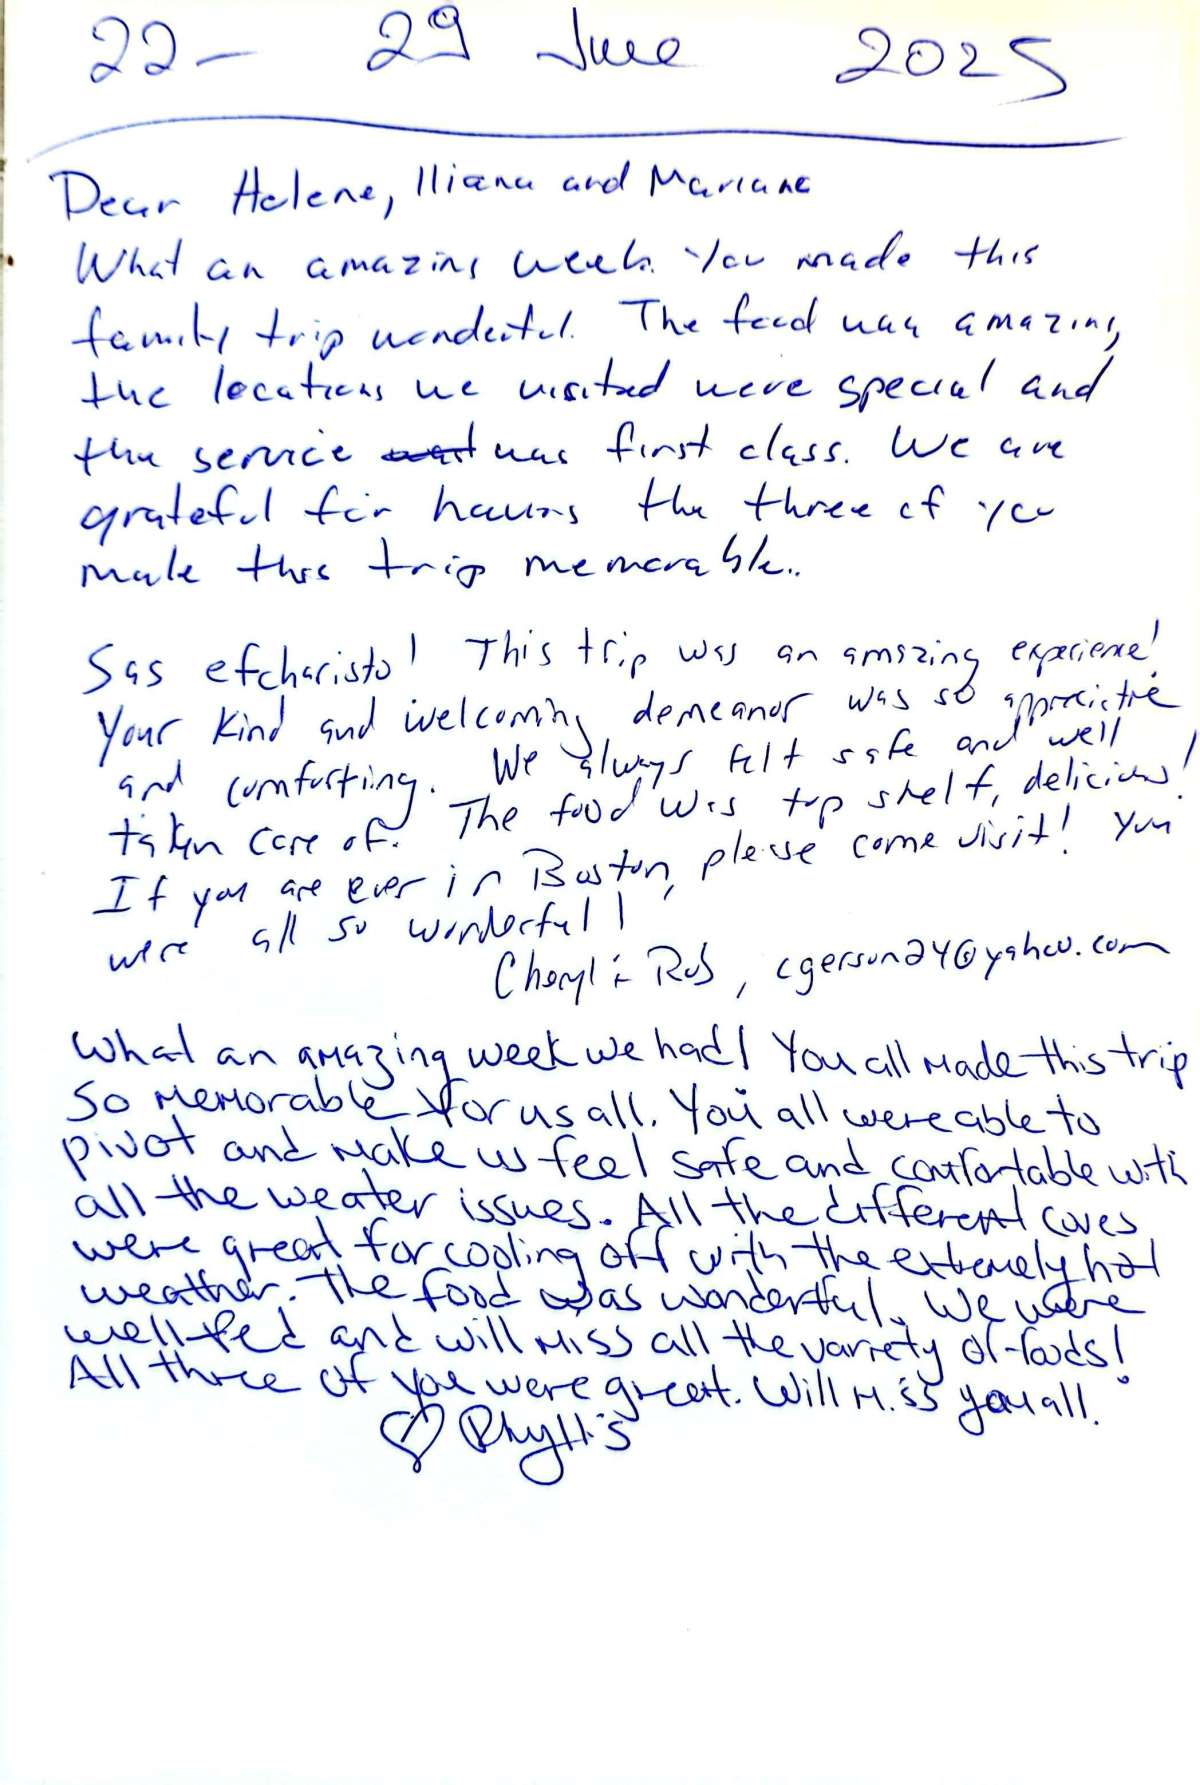 22 - 29 June 2025
Dear Helene, Iliana and Mariana
What an amazing week. You made this
family trip wonderful. The food was amazing,
the locations we visited were special and
the service was first class. We are
grateful for having the three of you
make this trip memorable.
Sas efcharisto! This trip was an amazing experience!
Your kind and welcoming demeanor was so appreciative
and comforting. We always felt safe and well
taken care of. The food was top shelf, delicious!
If you are ever in Boston, please come visit! You
were all so wonderful!
Cheryl & Rob, cgerson24@yahoo.com
What an amazing week we had! You all made this trip
So memorable for us all. You all were able to
pivot and make us feel safe and comfortable with
all the weater issues. All the different coves
were great for cooling off with the extremely hot
weather. The food was wonderful. We were
well fed and will miss all the variety of foods!
All three of you were great. Will miss you all.
♡ Phyllis